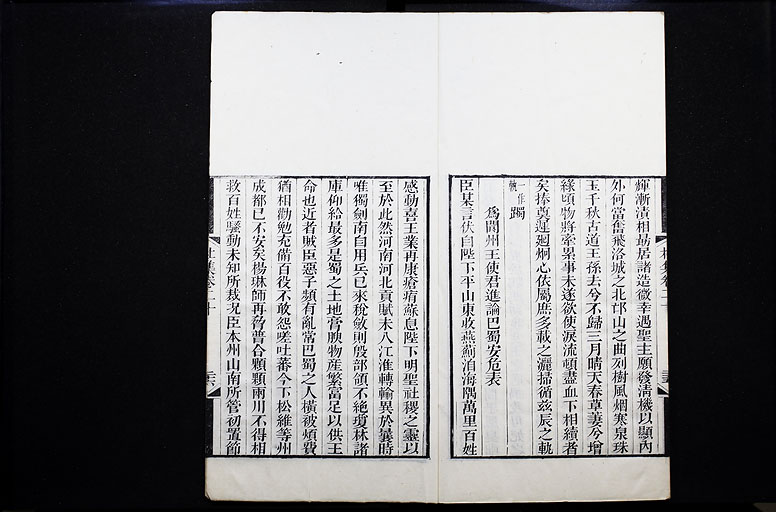 輝漸漬相最居諸造徵幸遇聖主願發淸機以顯內
外何當奮飛洛城之北邙山之曲列樹風烟寒泉珠
玉千秋古道王孫去兮不歸三月晴天春草萋兮增
綠頃物將牽累事未遂欲使淚流頓盡血下相續者
矣捧奠遲迴炯心依屬庶多載之灑掃循茲辰之軌
躅一作軌
爲閬州王使君進論巴蜀安危表
臣某言伏自陛下平山東收燕薊洎海隅萬里百姓
感動喜王業再康瘡痏蘇息陛下明聖社稷之靈以
至於此然河南河北貢賦未入江淮轉輸異於曩時
唯獨劍南自用兵已來稅斂則殷部領不絕瓊林諸
庫仰給最多是蜀之土地膏腴物産繁富足以供王
命也近者賊臣惡子頻有亂常巴蜀之人橫被煩費
猶相勸勉充備百役不敢怨嗟吐蕃今下松維等州
成都已不安矣楊琳師再脅普合顒顒兩川不得相
救百姓騷動未知所裁況臣本州山南所管初置節
杜集卷二十